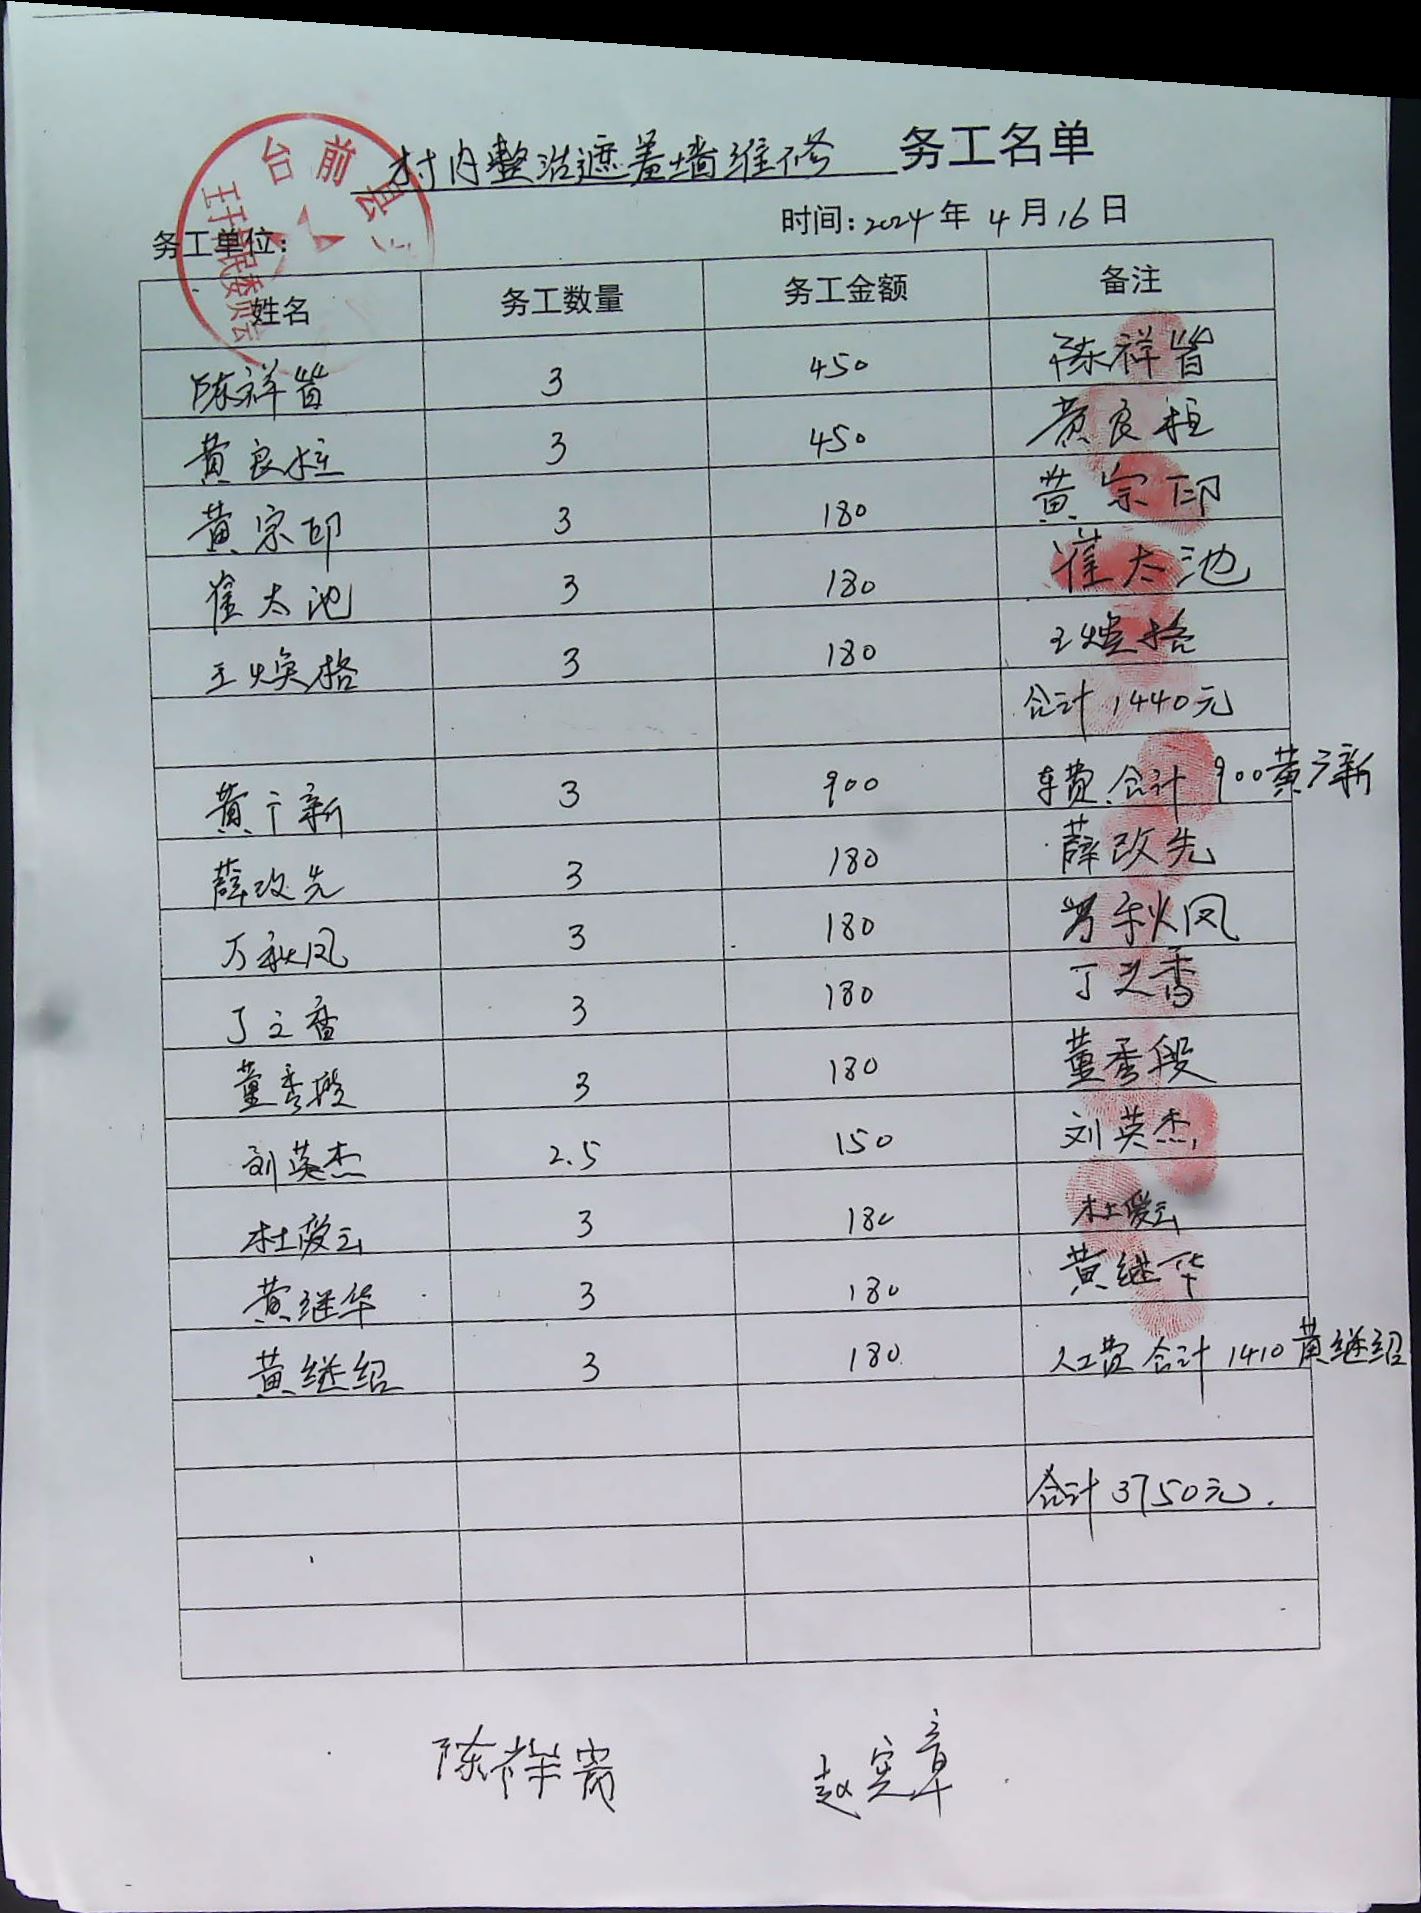 台前县
村内整治遮羞墙维修 务工名单
时间:2024年4月16日
务工单位:
姓名 务工数量 务工金额 备注
陈祥皆 3 450 陈祥皆
黄良柱 3 450 黄良柱
黄宗印 3 180 黄宗印
崔太池 3 180 崔太池
王焕格 3 180 王焕格
合计1440元
黄广新 3 900 车费合计900黄广新
薛改先 3 180 薛改先
万秋凤 3 180 万秋凤
丁之香 3 180 丁之香
董秀段 3 180 董秀段
刘英杰 2.5 150 刘英杰
杜爱云 3 180 杜爱云
黄继华 3 180 黄继华
黄继绍 3 180 人工费合计1410黄继绍
合计3750元.
陈祥 赵宪章